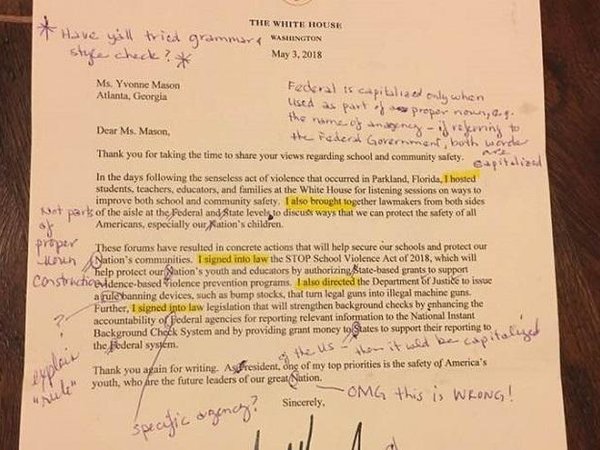 THE WHITE HOUSE
WASHINGTON
May 3, 2018
* Have y'all tried grammar &
style check? *
Ms. Yvonne Mason
Atlanta, Georgia
Federal is capitalized only when
used as part of a proper noun, e.g.
the name of an agency - if referring to
the Federal Government, both words
are
capitalized
Dear Ms. Mason,
Thank you for taking the time to share your views regarding school and community safety.
In the days following the senseless act of violence that occurred in Parkland, Florida, I hosted
students, teachers, educators, and families at the White House for listening sessions on ways to
improve both school and community safety. I also brought together lawmakers from both sides
of the aisle at the Federal and State levels to discuss ways that we can protect the safety of all
Americans, especially our Nation's children.
Not part
of
proper
noun
construction
These forums have resulted in concrete actions that will help secure our schools and protect our
Nation's communities. I signed into law the STOP School Violence Act of 2018, which will
help protect our Nation's youth and educators by authorizing State-based grants to support
evidence-based violence prevention programs. I also directed the Department of Justice to issue
a rule banning devices, such as bump stocks, that turn legal guns into illegal machine guns.
Further, I signed into law legislation that will strengthen background checks by enhancing the
accountability of Federal agencies for reporting relevant information to the National Instant
Background Check System and by providing grant money to States to support their reporting to
the Federal system.
?
explain
"rule"
of the US - then it would be capitalized
Thank you again for writing. As President, one of my top priorities is the safety of America's
youth, who are the future leaders of our great Nation.
OMG this is WRONG!
Sincerely,
specific agency?